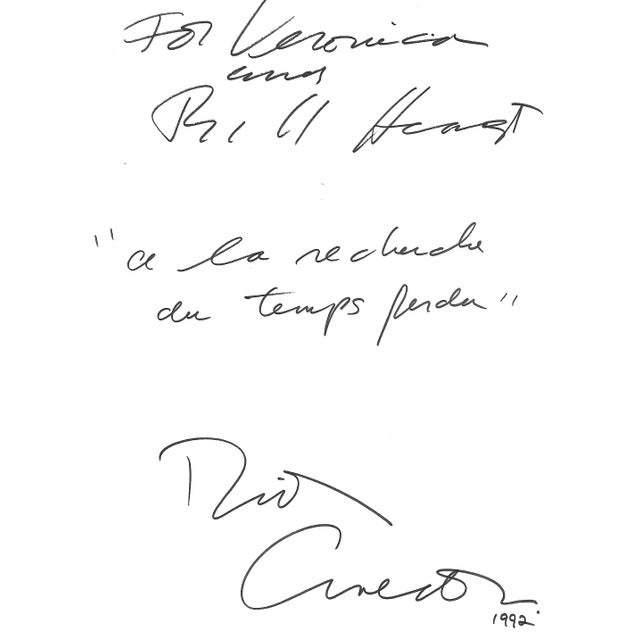 For Veronica
and
Bill Hearst
"a la recherche
du temps perdu"
1992